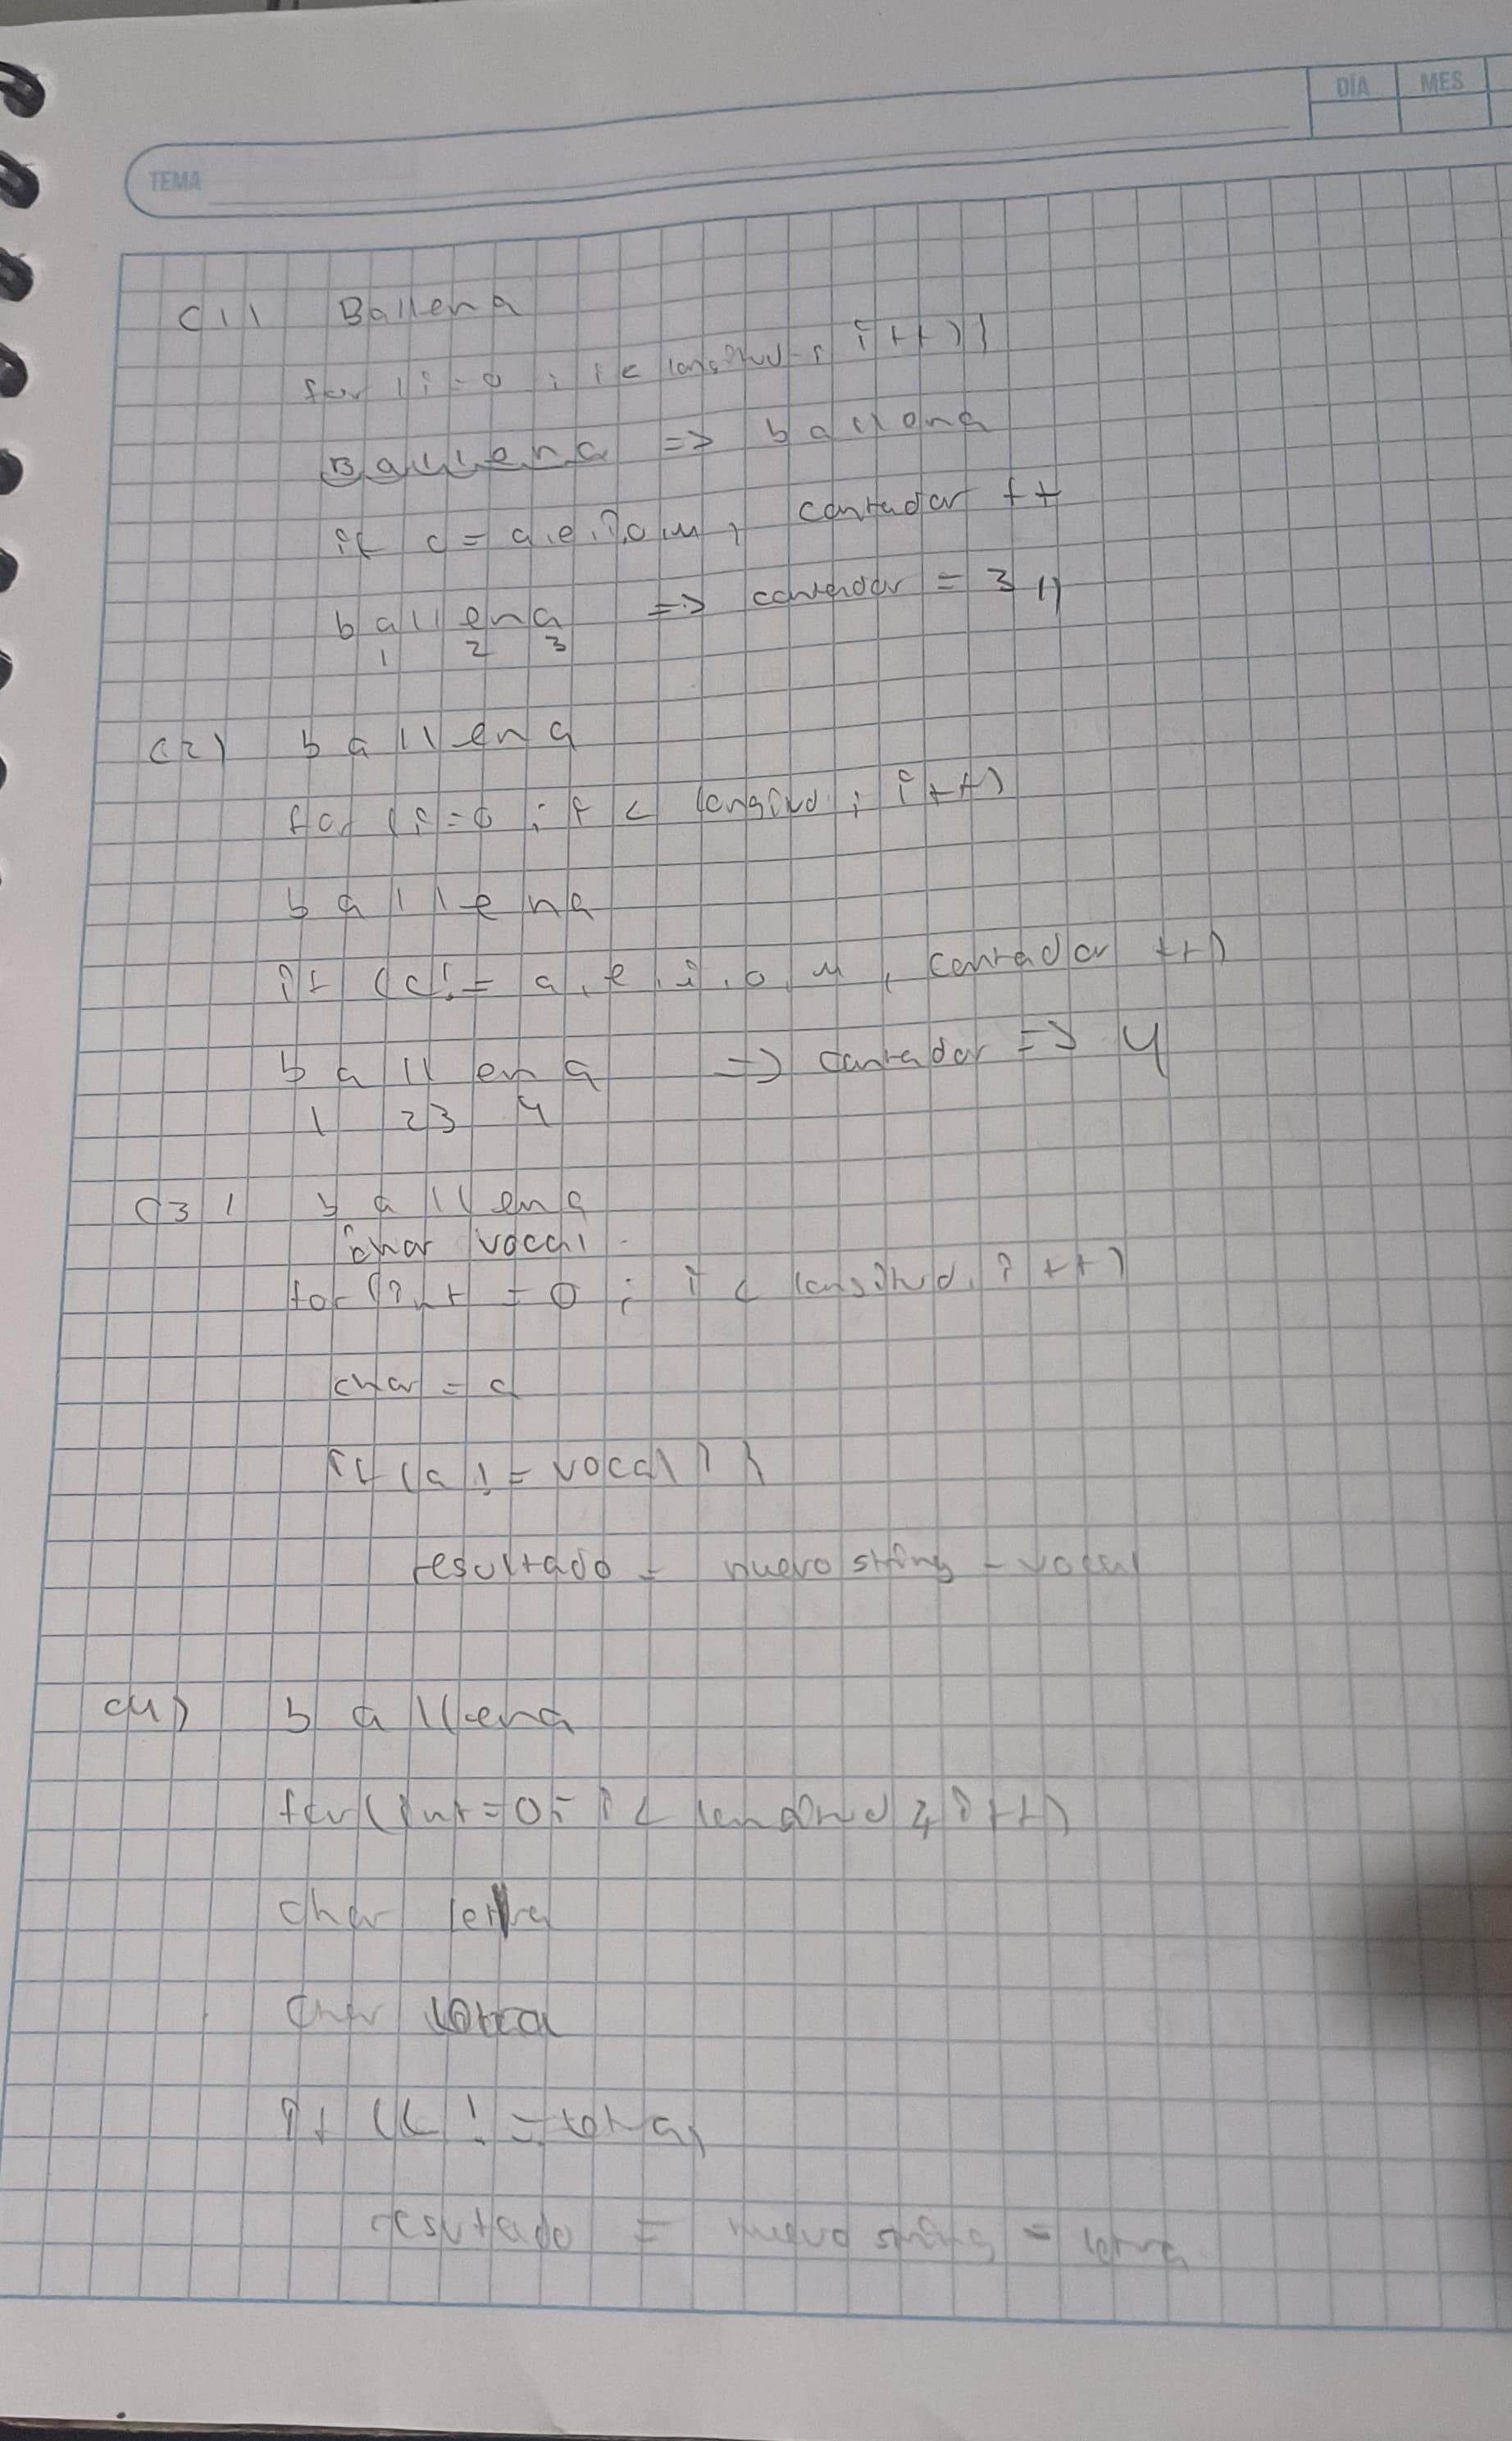 DÍA MES
TEMA
C11 Ballena
for (i=0 ; i < longitud ; i++) }
Ballena => ballena
if c = a,e,i,o,u, contador ++
ballena => contador = 3 //
1 2 3
(2) ballena
for (i=0 ; i < longitud ; i++)
ballena
if (c != a,e,i,o,u, contador ++)
ballena => contador => 4
1 23 4
(3) ballena
char vocal
for (int = 0 ; i < longitud, i++)
char = a
if (a != vocal) }
resultado = nuevo string - vocal
(4) ballena
for (int = 0; i < longitud ; i++)
char letra
char
if ( != letra)
resultado = nuevo string = letra